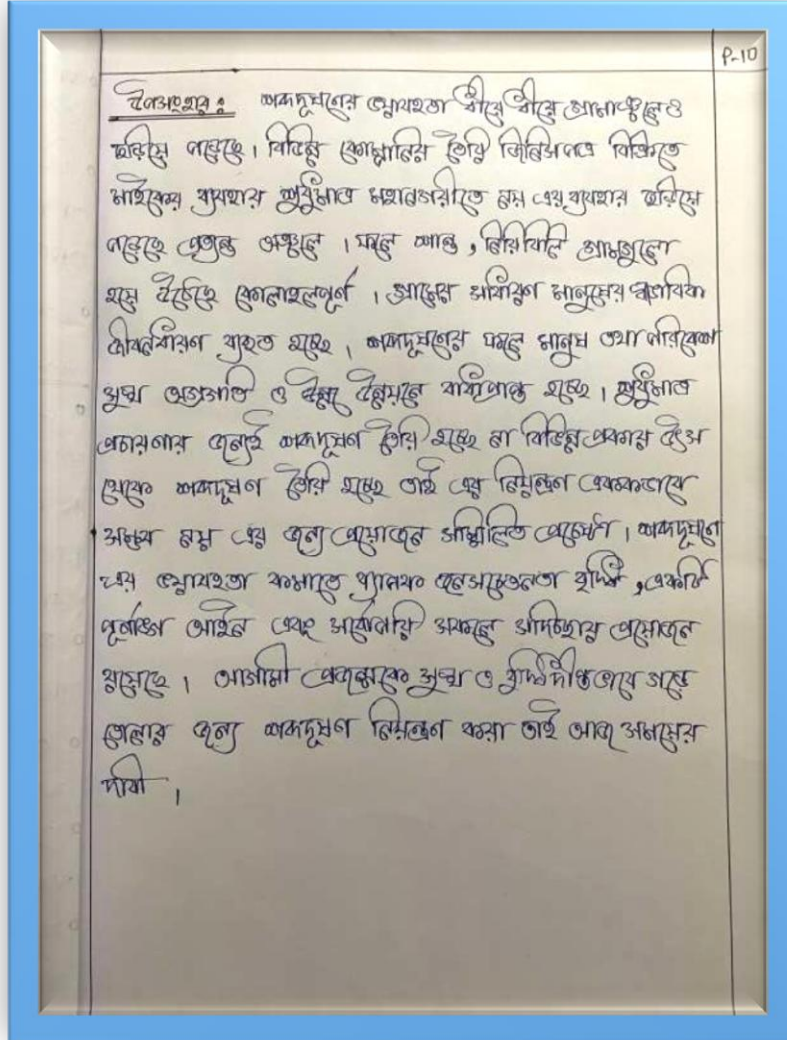 P-10
উপসংহার : শব্দদূষণের ভয়াবহতা ধীরে ধীরে গ্রামাঞ্চলেও
ছড়িয়ে পড়েছে। বিভিন্ন কোম্পানির তৈরি জিনিসপত্র বিক্রিতে
মাইকের ব্যবহার শুধুমাত্র মহানগরীতে নয় এর ব্যবহার ছড়িয়ে
পড়েছে প্রত্যন্ত অঞ্চলে। ফলে শান্ত, নিরিবিলি গ্রামগুলো
হয়ে উঠেছে কোলাহলপূর্ণ। গ্রামের সাধারণ মানুষের স্বাভাবিক
জীবনধারণ ব্যহত হচ্ছে। শব্দদূষণের ফলে মানুষ তথা পরিবেশ
সুস্থ অগ্রগতি ও উন্নয়নে বাধাপ্রাপ্ত হচ্ছে। শুধুমাত্র
প্রচারণার জন্যেই শব্দদূষণ তৈরি হচ্ছে না বিভিন্ন প্রকার উৎস
থেকে শব্দদূষণ তৈরি হচ্ছে তাই এর নিয়ন্ত্রন এককভাবে
সম্ভব নয় এর জন্য প্রয়োজন সম্মিলিত প্রচেষ্টা। শব্দদূষণে
এর ভয়াবহতা কমাতে ব্যাপক জনসচেতনতা বৃদ্ধি, একটি
পূর্ণাঙ্গ আইন এবং সর্বোপরি সকলে সদিচ্ছার প্রয়োজন
রয়েছে। আগামী প্রজন্মকে সুস্থ ও বুদ্ধিদীপ্তভাবে গড়ে
তোলার জন্য শব্দদূষণ নিয়ন্ত্রন করা তাই আজ সময়ের
দাবী।